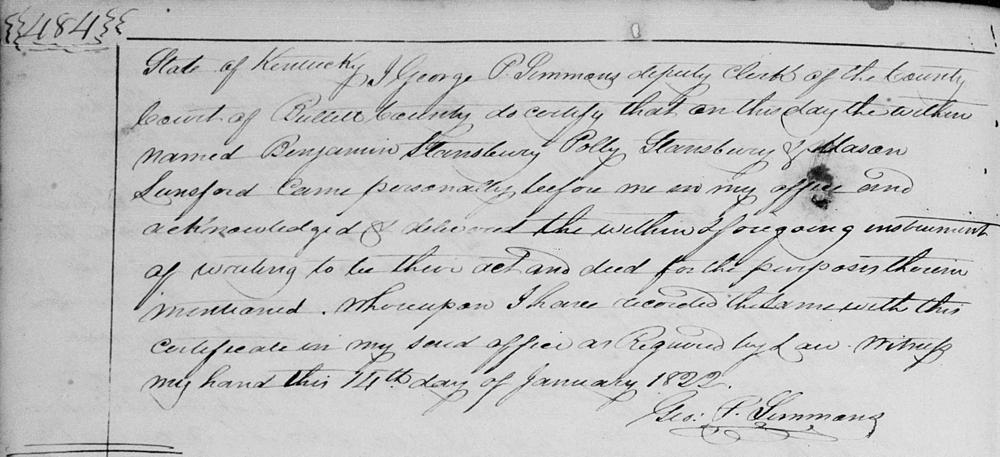 484
State of Kentucky I George P. Simmons deputy Clerk of the County
Court of Bullitt County do certify that on this day the within
named Benjamin Stansbury Polly Stansbury & Mason
Lunsford Came personally before me in my office and
acknowledged & delivered the within & foregoing instrument
of writing to be their act and deed for the purposes therein
mentioned. Whereupon I have recorded the same with this
certificate in my said office as Required by Law. Witness
my hand this 14th day of January 1822.
Geo: P. Simmons